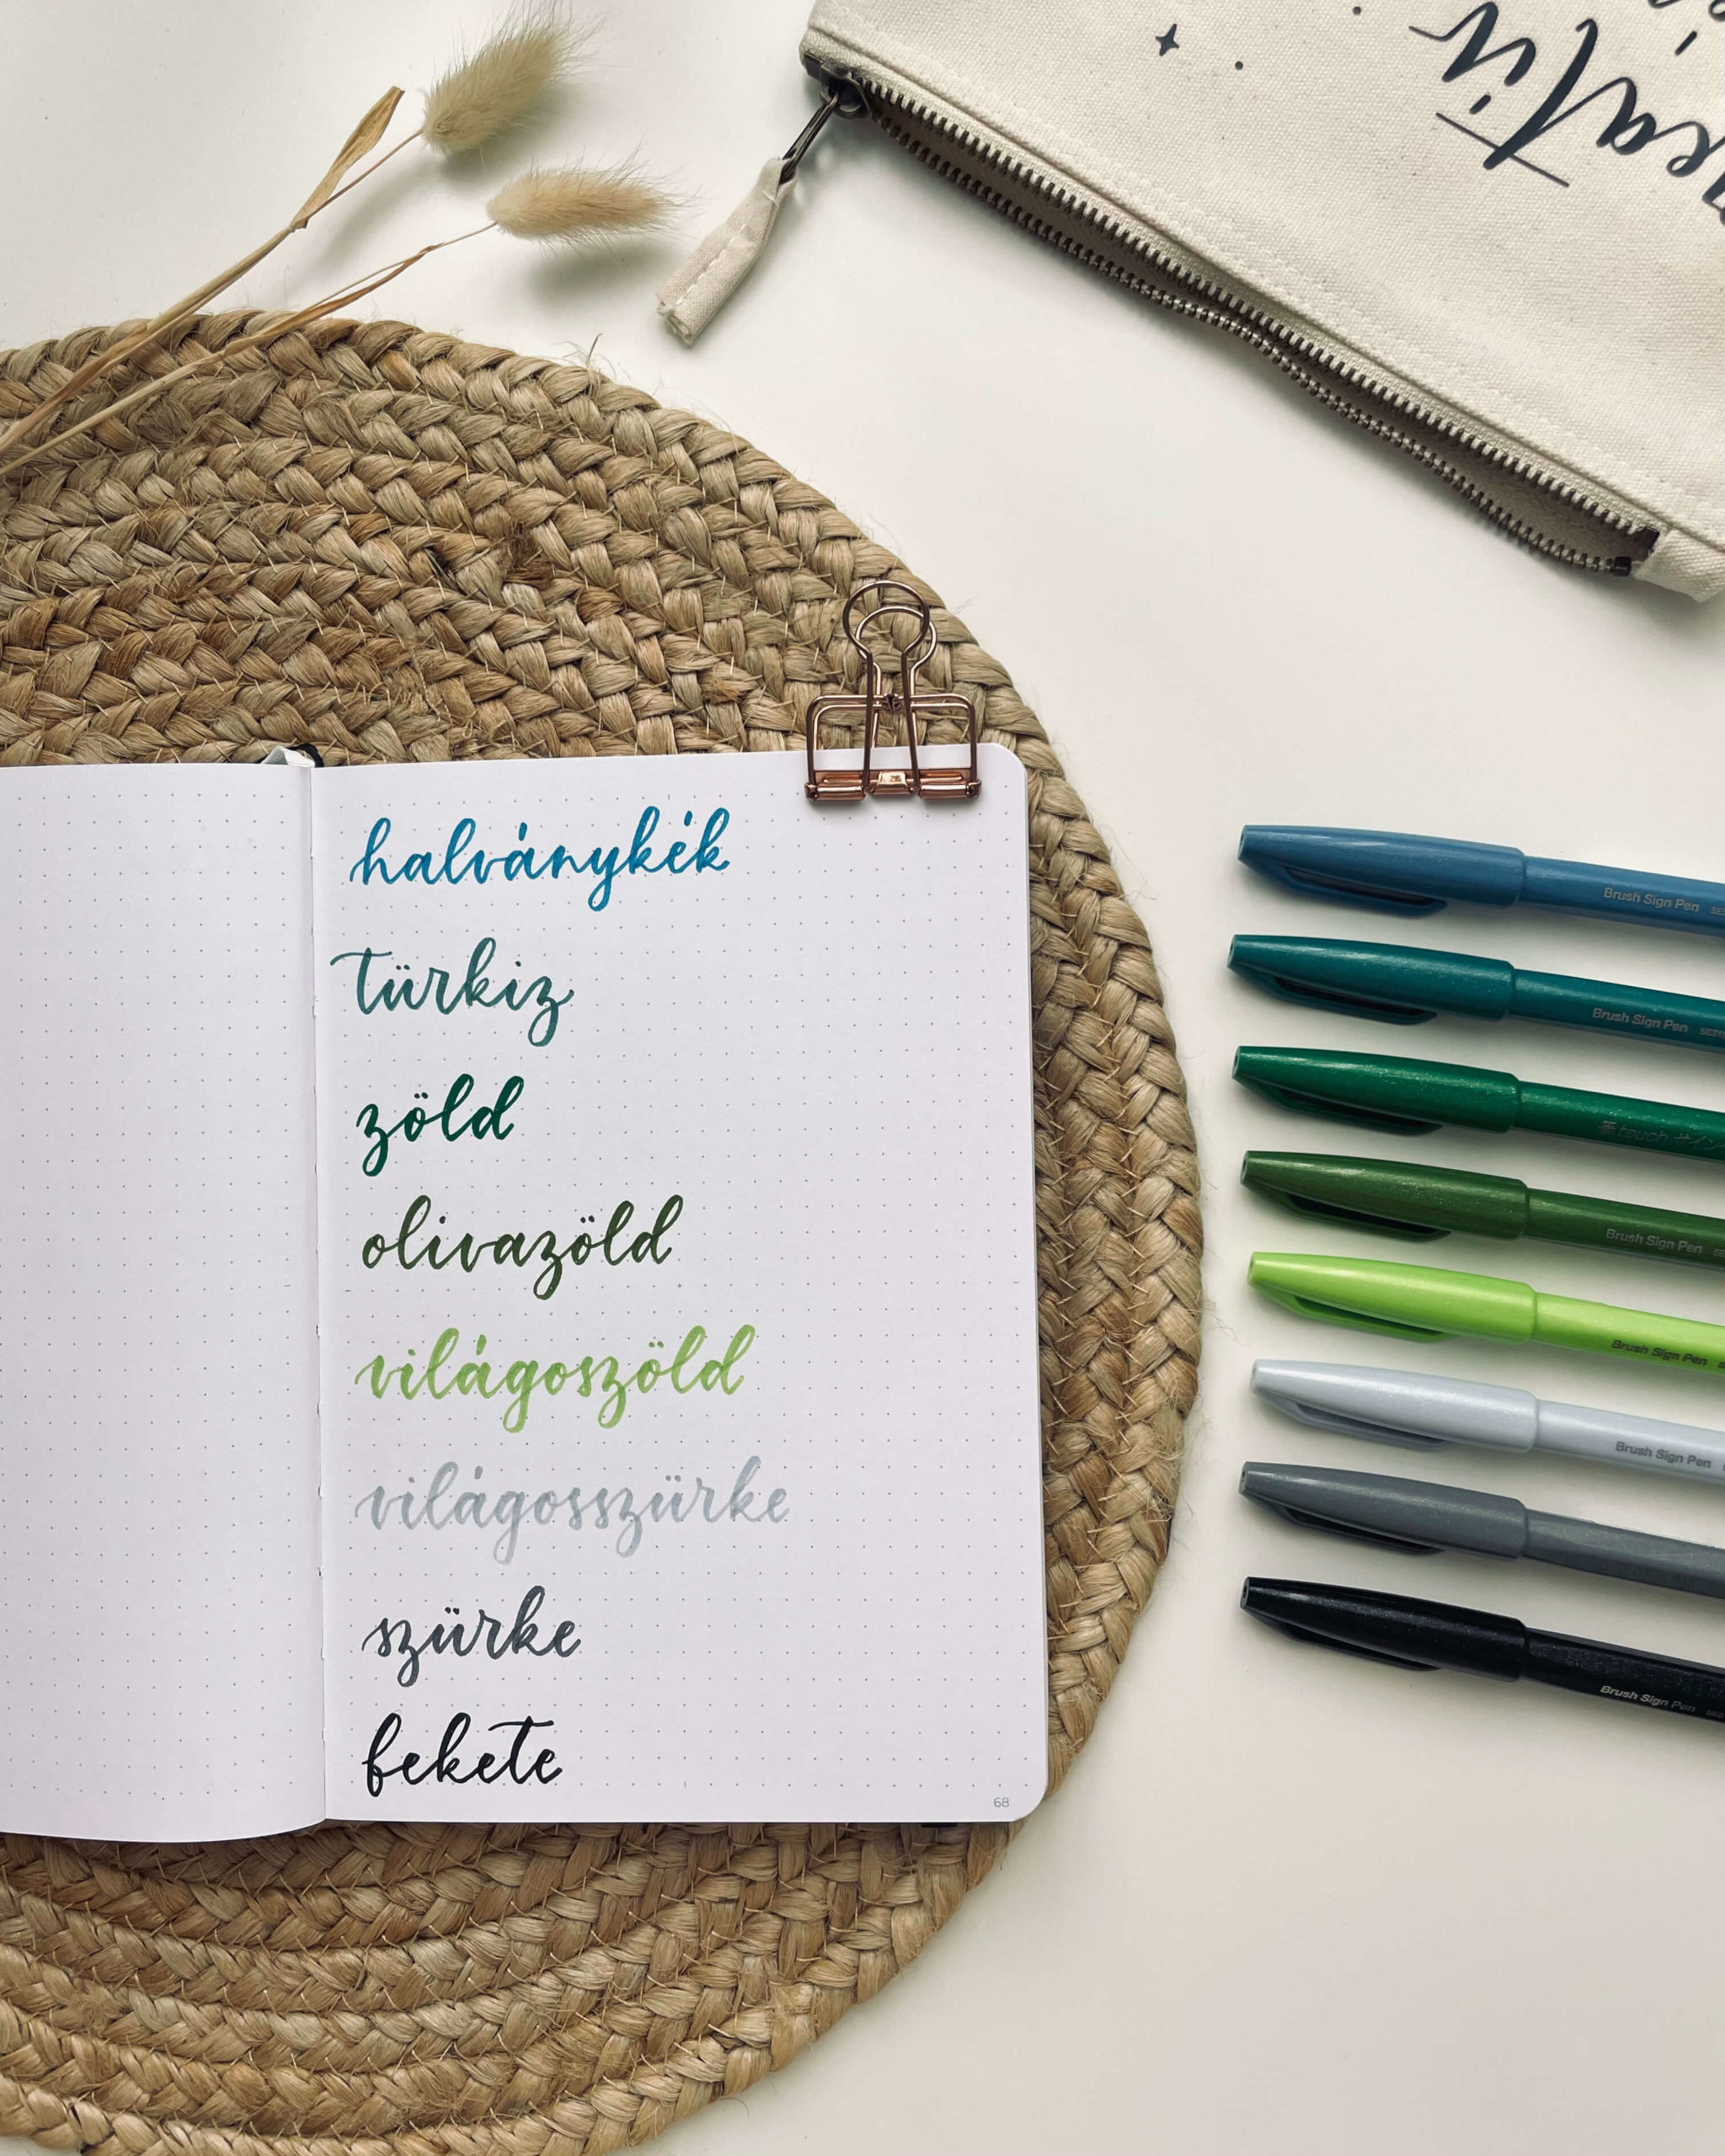 halványkék
türkiz
zöld
olivazöld
világoszöld
világosszürke
szürke
fekete
68
Brush Sign Pen
Brush Sign Pen
touch サイン
Brush Sign Pen
Brush Sign Pen
Brush Sign Pen
Brush Sign Pen